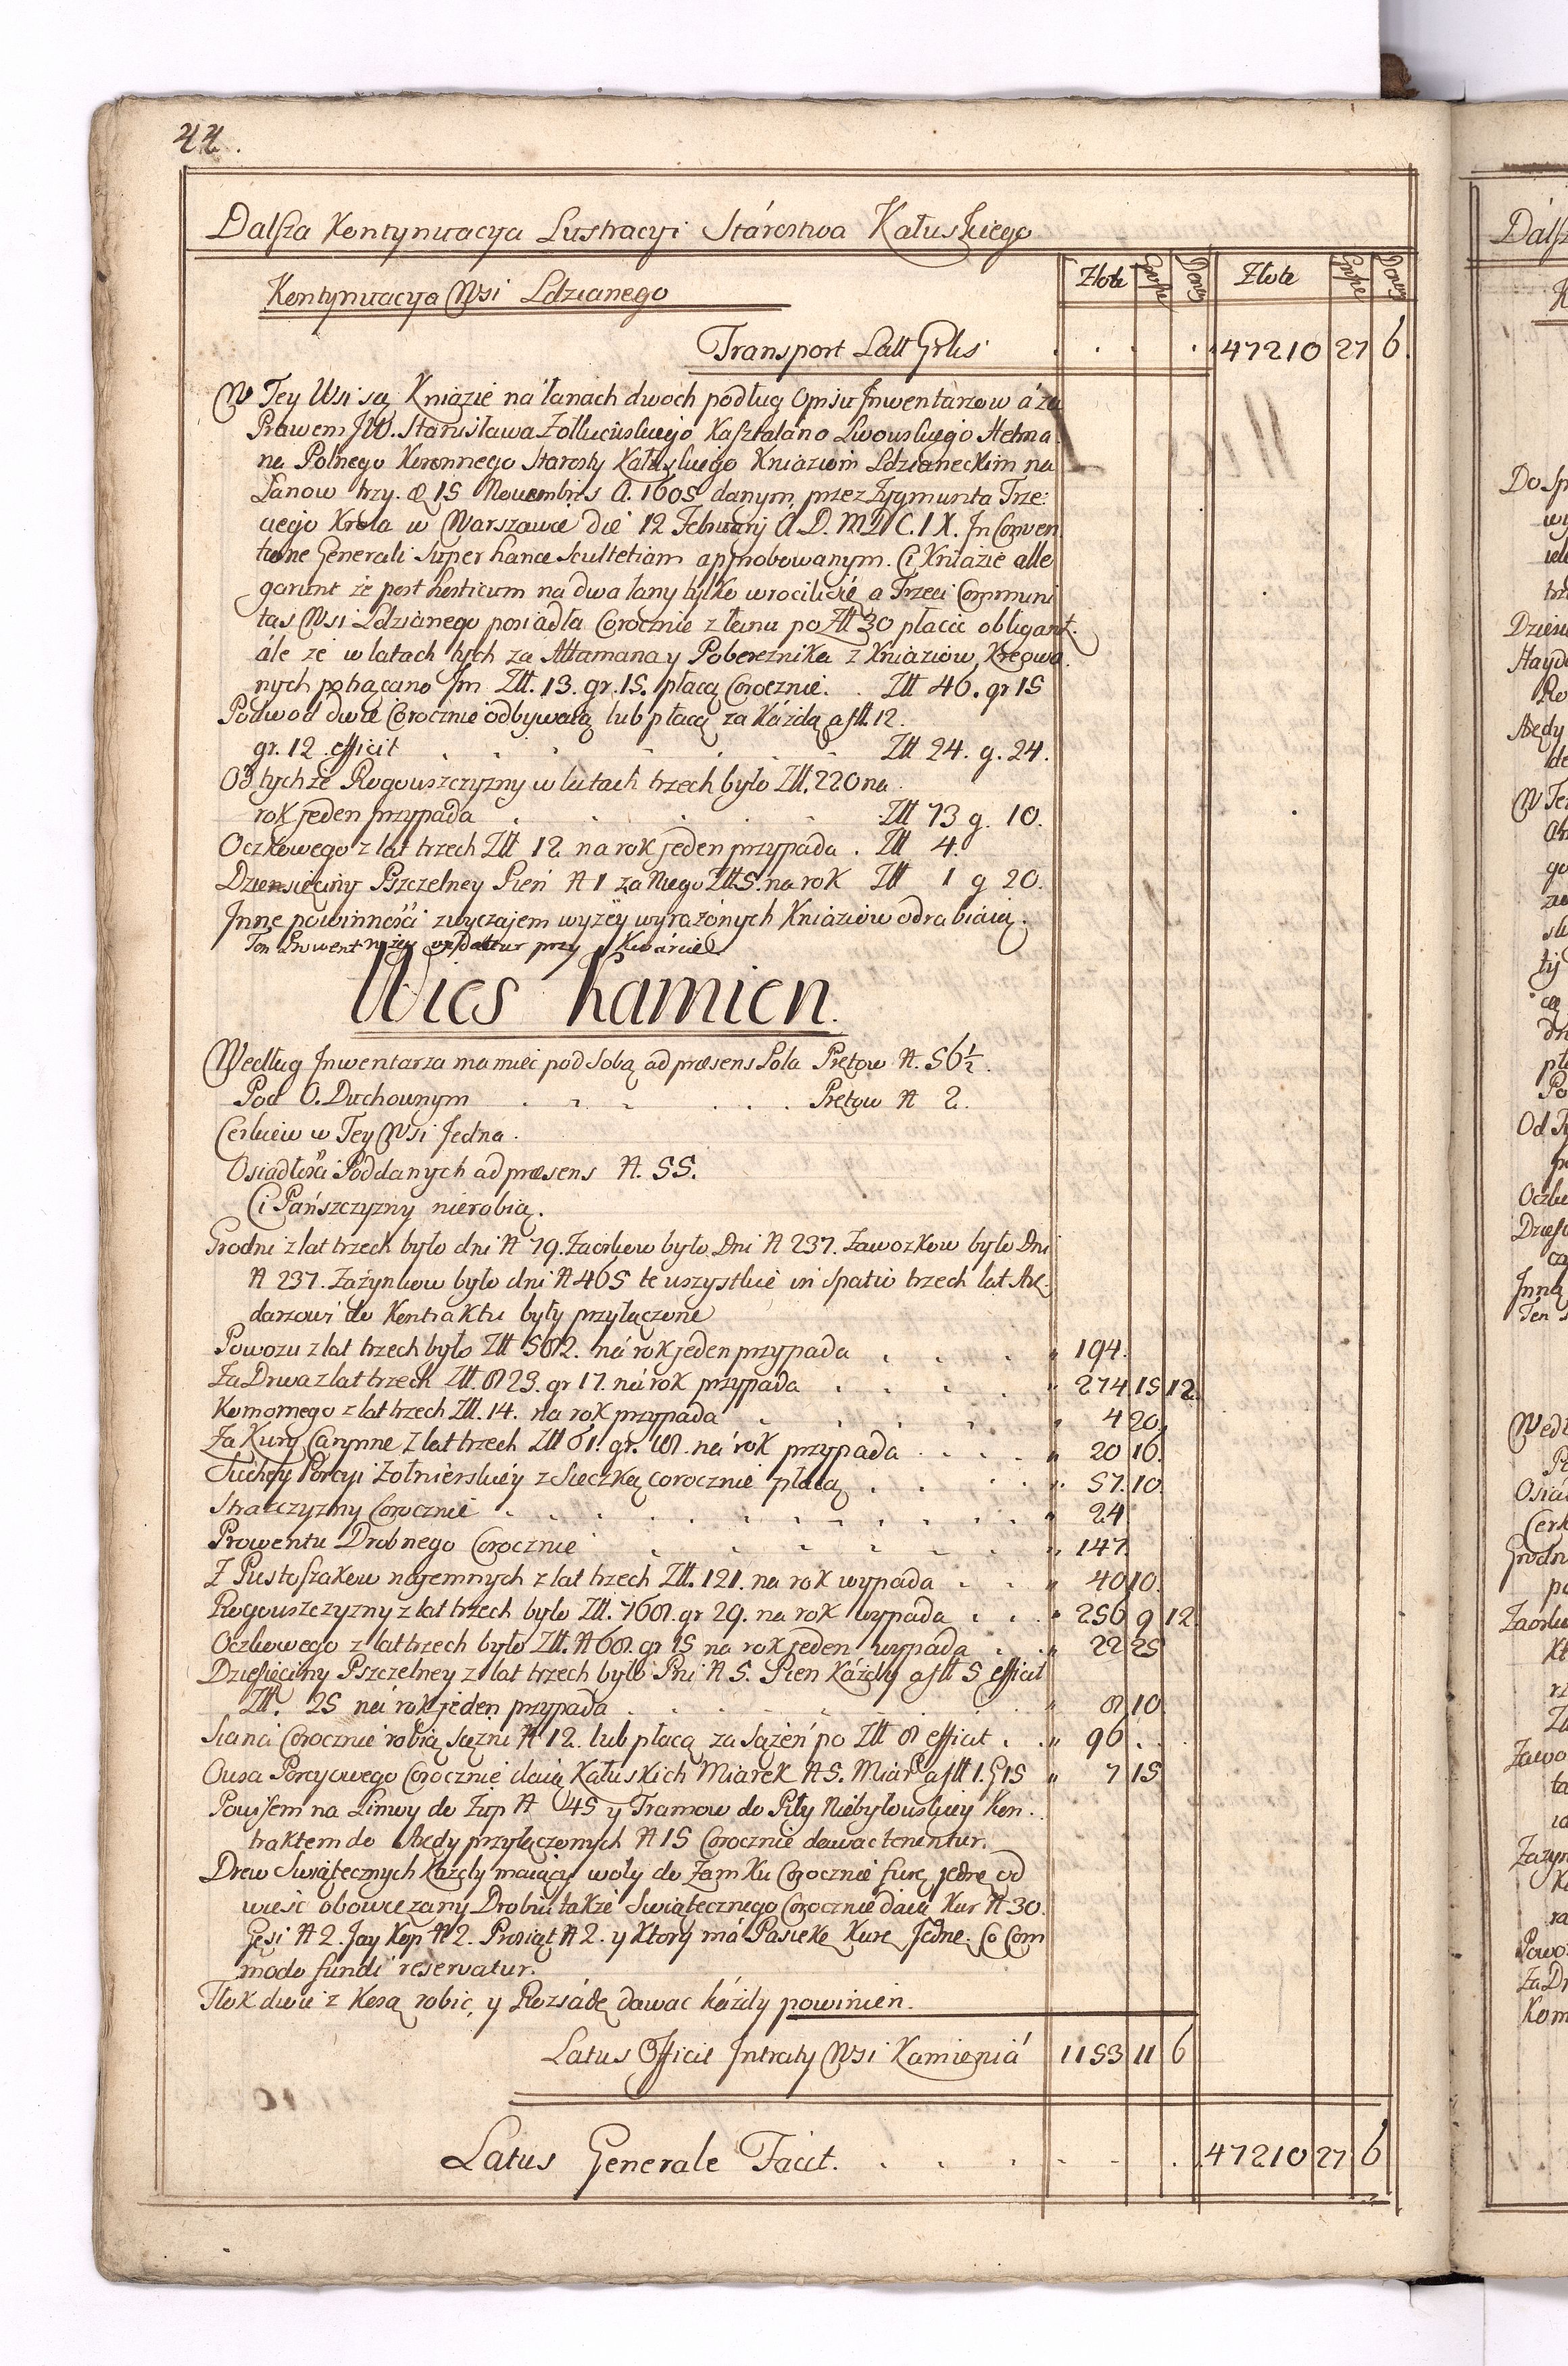 44.
Dalsza Kontynuacya Lustracyi Stárostwa Kałuskiego
Kontynuacya Wsi Ldzianego
Złote Grosze Denary Złote Grosze Denary
Transport Latt Grlis . . . . 47210 27 6.
W Tey Wsi są Kniazie na łanach dwoch podług Opisu Inwentarzow á za
Prawem JW. Stanisława Zołkiewskiego Kasztelana Lwowskiego Hetma
na Polnego Koronnego Starosty Kałuskiego Kniaziom Ldzianeckim na
Łanow trzy. d 15 Novembris A. 1605 danym przez Zygmunta Trze:
ciego Krola w Warszawie die 12 Februarij A. D. MDC.IX. In Conven
tione Generali super hanc Scultetiam approbowanym. Ci Kniazie alle
garunt że post hosticum na dwa łany tylko wrocili się a Trzeci Communi
tas Wsi Ldzianego posiadła Corocznie z łanu po Złt 30 płacić obligant.
ále że w latach tych za Attamana y Pobereznika z Kniaziow Kreowa
nych potrącano Im Złt. 13. gr. 15. płacą Corocznie. . Złt 46. gr 15
Podwod dwie Corocznie odbywaią lub płacą za Każdą a flt. 12.
gr. 12 efficit . . . . . . Złt 24. g. 24.
Od tychże Rogowszczyzny w latach trzech było Złt. 220 na
rok jeden przypada . . . . . Złt 73 g. 10.
Oczkowego z lat trzech Złt 12 na rok jeden przypada . Złt 4.
Dziesięciny Pszczelney Pień N 1 za Niego Złt. 5. na rok Złt 1 g 20.
Inne powinności zwyczajem wyżey wyrażonych Kniaziow odrabiaią.
Ten Prowent przy Kwarcie
Wies Kamien.
Według Inwentarza ma mieć pod sobą ad præsens Pola Prętow N. 56½.
Pod O. Duchownym . . . . . . Prętow N 2.
Cerkiew w Tey Wsi Jedna.
Osiadłości Poddanych ad præsens N. 55.
Ci Pańszczyzny nierobią.
Grodni z lat trzech było dni N 79. Zaorkow było Dni N 237. Zawozkow było Dni
N 237. Zażynkow było dni N 465 te wszystkie in spatio trzech lat Are
darzowi do Kontraktu były przyłączone
Powozu z lat trzech było Złt 582. ná rok jeden przypada . . . „ 194.
Za Drwa z lat trzech Złt. 823. gr 17. ná rok przypada . . . . „ 274 15 12.
Komornego z lat trzech Złt. 14. na rok przypada . . . . . „ 4 20.
Za Kury Czynne z lat trzech Złt 61. gr. 18. ná rok przypada . . . . „ 20 16.
Suchey Porcyi Żołnierskiey z Sieczką corocznie płacą . . . . „ 57. 10.
Strażczyzny Corocznie . . . . . . . . . . „ 24.
Prowentu Drobnego Corocznie . . . . . . „ 147.
Z Pustoszakow najemnych z lat trzech Złt. 121. na rok wypada . . „ 40 10.
Rogowszczyzny z lat trzech było Złt. 768. gr 29. na rok wypada . . . „ 256 9 12.
Oczkowego z lat trzech było Złt. N 68. gr 15 na rok jeden wypada . . „ 22 25
Dziesięciny Pszczelney z lat trzech było Pni N 5. Pien Każdy a flt 5 efficit
Złt. 25 ná rok jeden przypada . . . . . . „ 8 10.
Siana Corocznie robią Sązni N 12. lub płacą za Sążeń po Złt 8 efficit . „ 96 .
Owsa Porcyowego Corocznie daią Kałuskich Miarek N 5. Miar a flt 1. g 15 „ 7 15
Powssem na Linwy do Zup N 45 y Tramow do Piły Niebyłowskiey Kon
traktem do Arędy przyłączonych N 15 Corocznie dawac tenentur.
Drew Swiątecznych Każdy maiący woły do Zamku Corocznie furę jednę od
wieść obowiązany Drobiu także Swiątecznego Corocznie daią Kur N 30.
Gęsi N 2. Jay Kop N 2. Prosiąt N 2. y Ktory má Pasiekę Kurę Jednę. Co Com
modo fundi reservatur.
Tłok dwie z Kosą robić, y Rozsádę dawac káżdy powinien.
Latus Efficit Intraty Wsi Kamieniá 1153 11 6
Latus Generale Facit. . . . . . . 47210 27 6